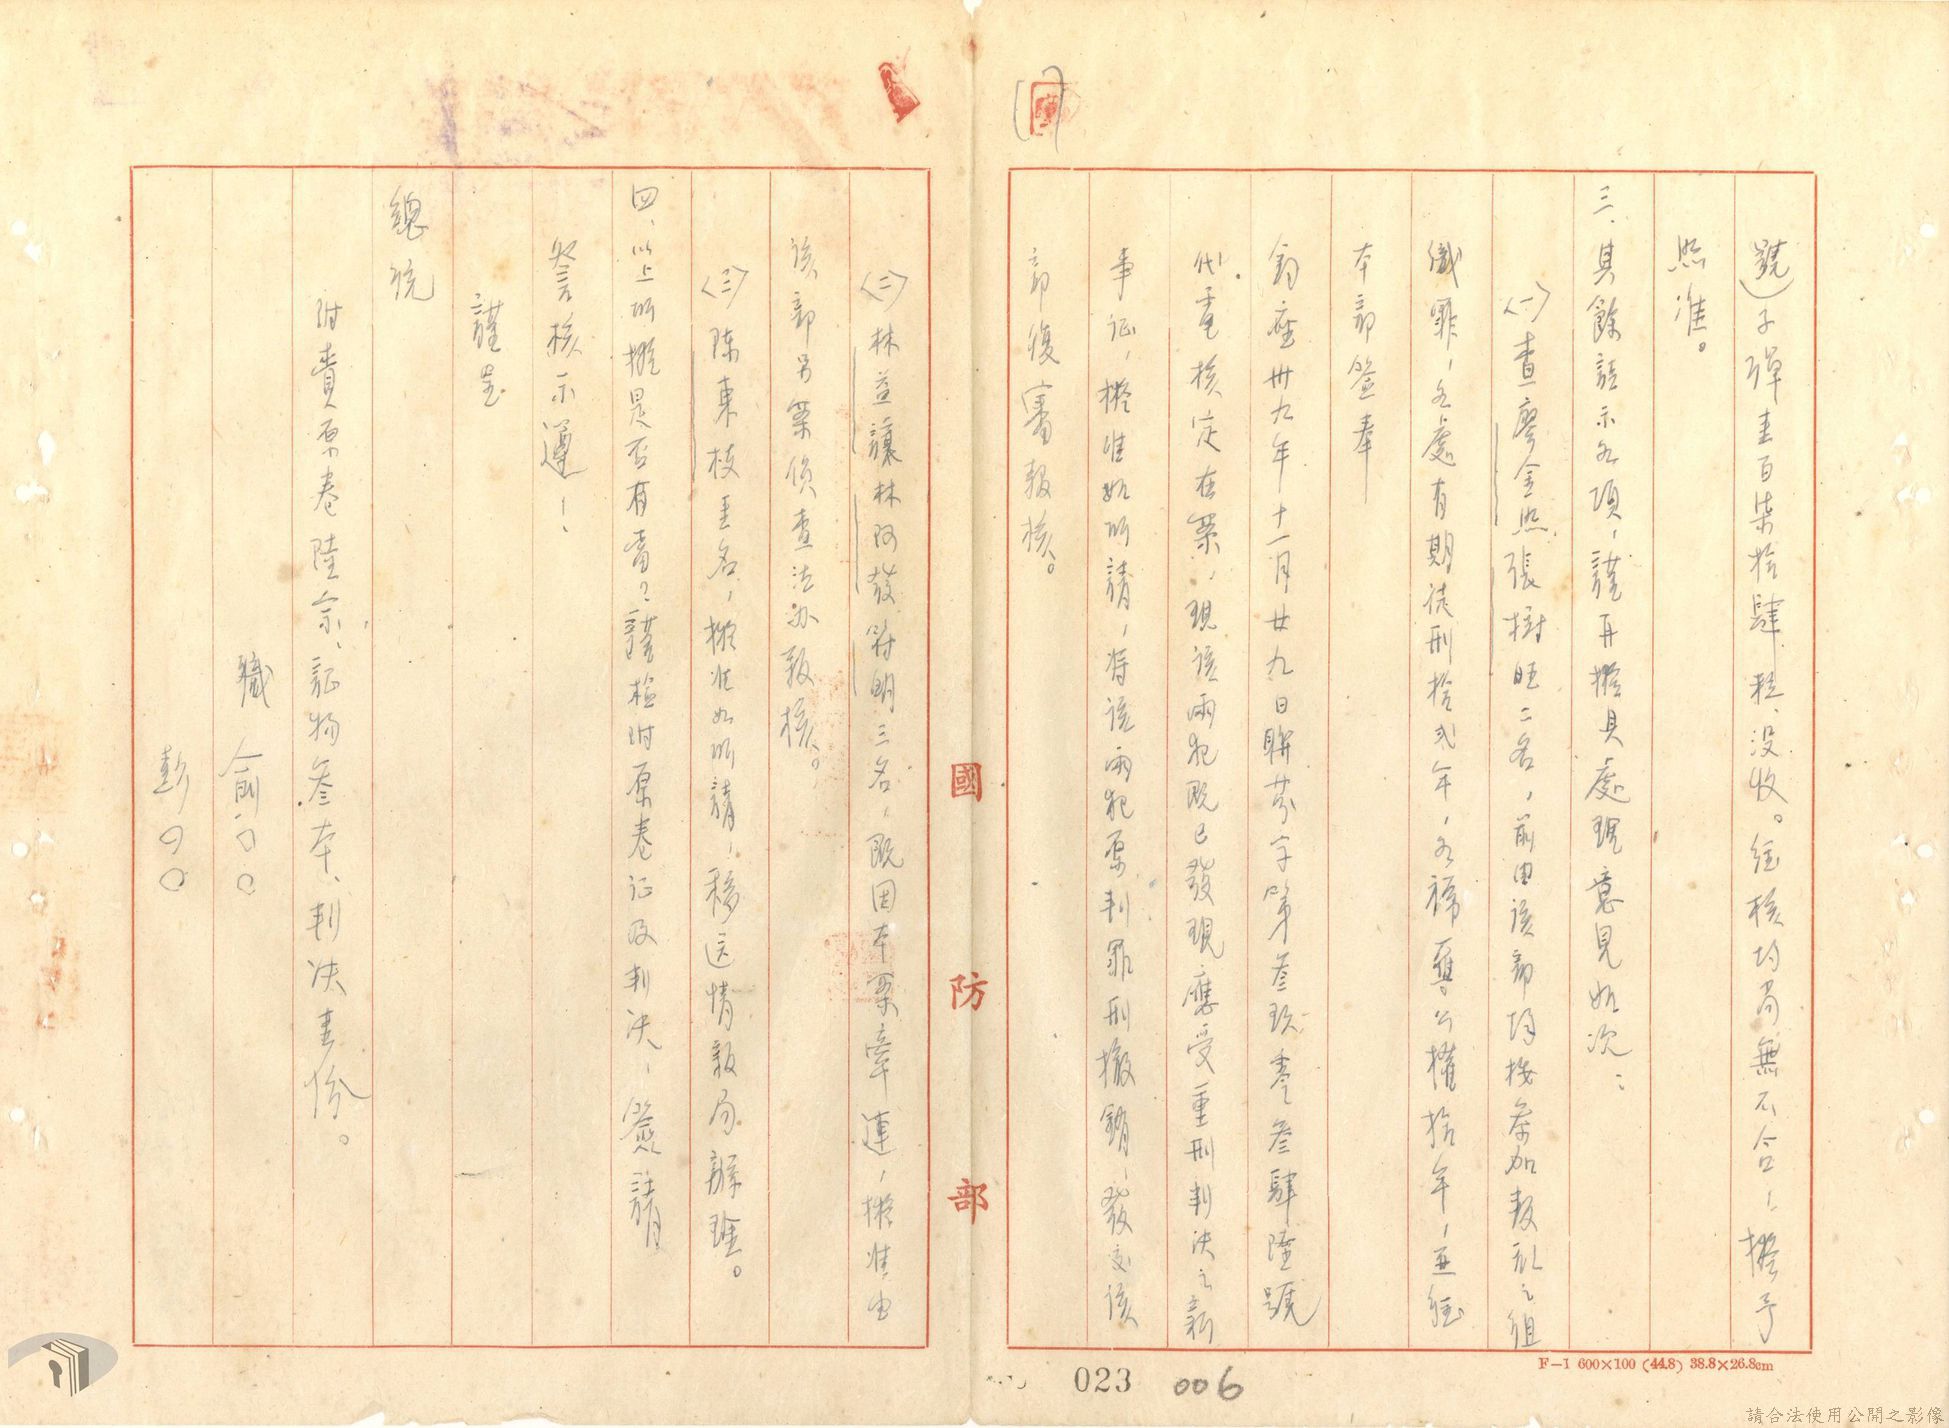 號)子彈壹百柒拾肆粒、沒收。經核均尚無不合、擬予
照准。
三、其餘請示各項，謹再擬具處理意見如次：
(一)查廖金照張樹旺二名，前由該部均按參加叛乱之組
織罪，各處有期徒刑拾弍年，各褫奪公權拾年，並經
本部簽奉
鈞座卅九年十一月廿九日聯芬字第叁玖零叁肆陸號
代電核定在案，現該兩犯既已發現應受重刑判決之新
事証，擬准如所請，将該兩犯原判罪刑撤銷，發交該
部復審報核。
(二)林益讓林阿發符明三名，既因本案牽連，擬准由
該部另案偵查法办報核。
(三)陈東枝壹名，擬准如所請，移送情報局辦理。
四、以上所擬是否有當？謹檢附原卷証及判決，簽請
詧核示遵！
謹呈
總統
附賫原卷陸宗、証物叁本、判決壹份。
職 俞○○
彭○○
國防部
F－1 600×100 (44.8) 38.8×26.8cm
023
006
請合法使用公開之影像